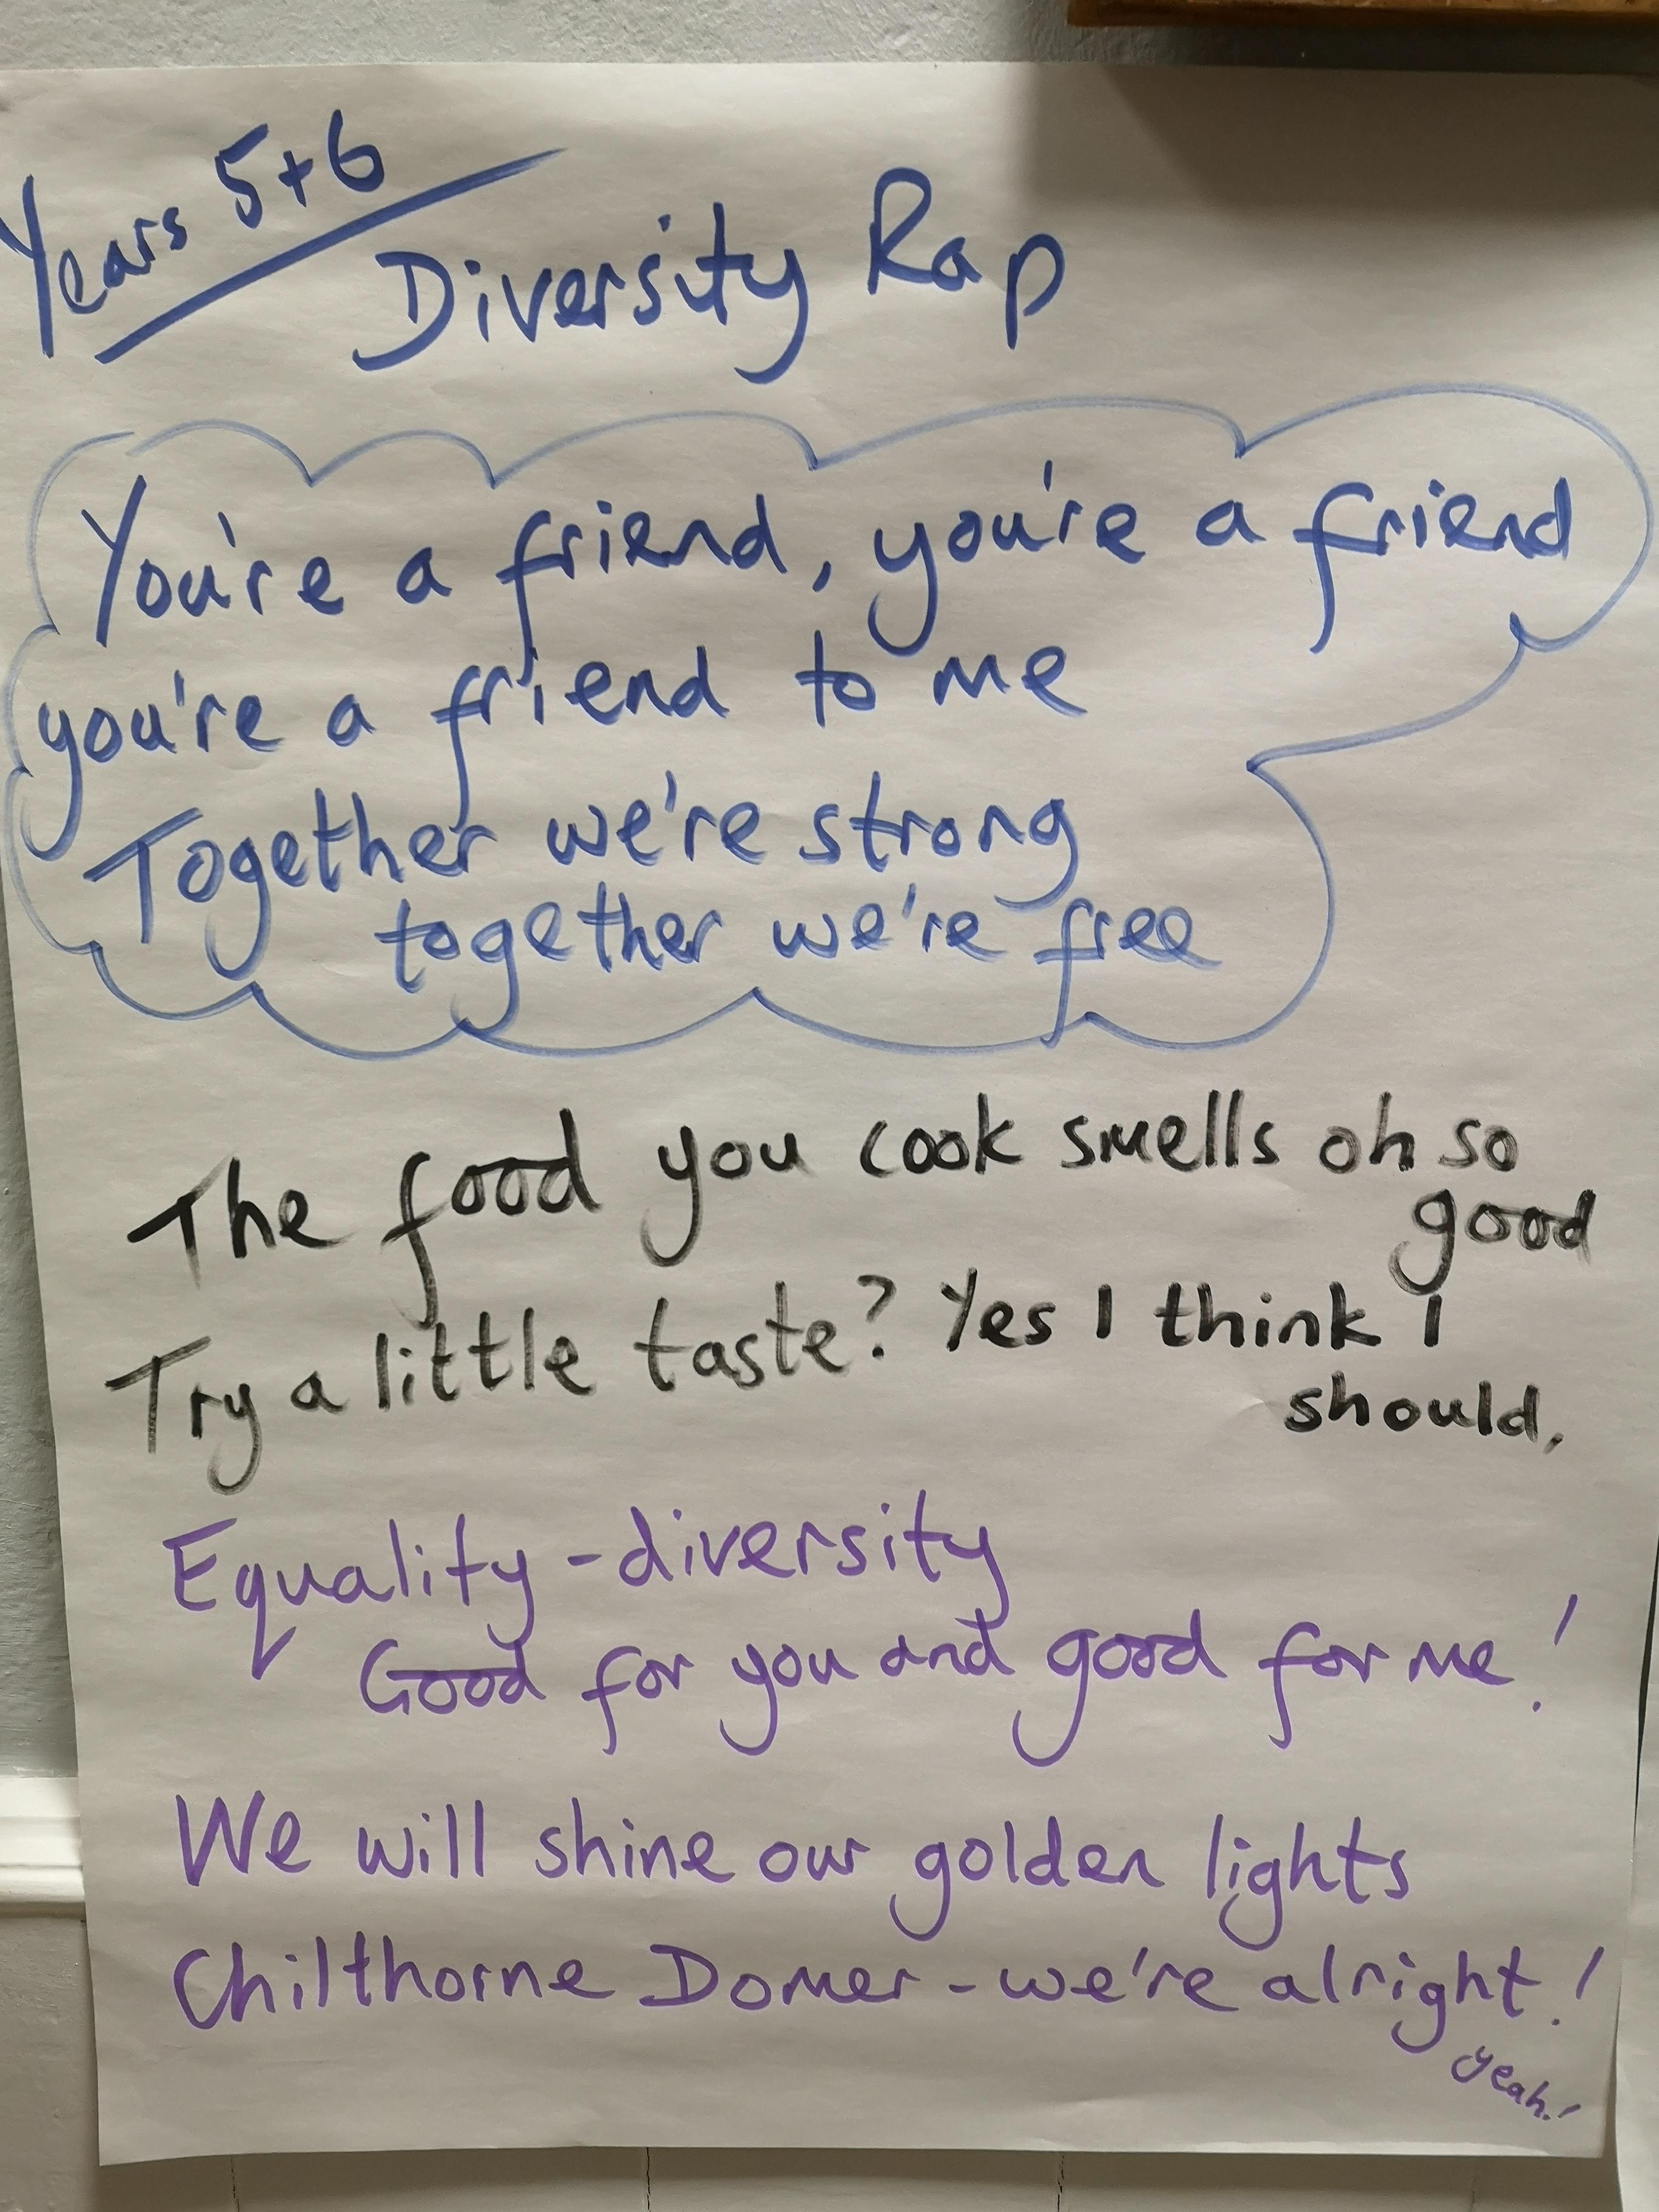 Years 5+6
Diversity Rap
You're a friend, you're a friend
you're a friend to me
Together we're strong
together we're free
The food you cook smells oh so
good
Try a little taste? Yes I think I
should,
Equality - diversity
Good for you and good for me!
We will shine our golden lights
Chilthorne Domer - we're alright!
yeah!